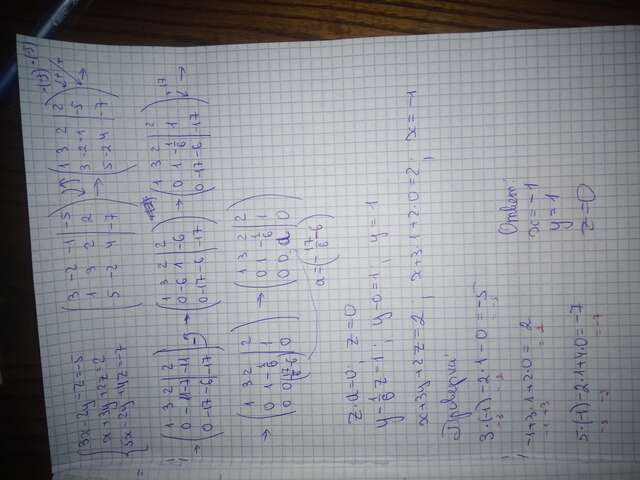 3x-2y-z=-5
x+3y+2z=2
5x-2y+4z=-7
3 -2 -1 | -5
1 3 2 | 2
5 -2 4 | -7
→
1 3 2 | 2
3 -2 -1 | -5
5 -2 4 | -7
·(-3) ·(-5)
→
→
1 3 2 | 2
0 -11 -7 | -11
0 -17 -6 | -17
→
1 3 2 | 2
0 -6 1 | -6
0 -17 -6 | -17
→
1 3 2 | 2
0 1 -1/6 | 1
0 -17 -6 | -17
·17
→
→
1 3 2 | 2
0 1 -1/6 | 1
0 0 (-17/6-6) | 0
→
1 3 2 | 2
0 1 -1/6 | 1
0 0 a | 0
a=(-17/6-6)
z·a=0; z=0
y-1/6z=1; y-0=1; y=1
x+3y+2z=2; x+3·1+2·0=2; x=-1
Проверка:
3·(-1)-2·1-0=-5
-3 -2 =-5
-1+3·1+2·0=2
-1 +3 =2
5·(-1)-2·1+4·0=-7
-5 -2 =-7
Ответ:
x=-1
y=1
z=0